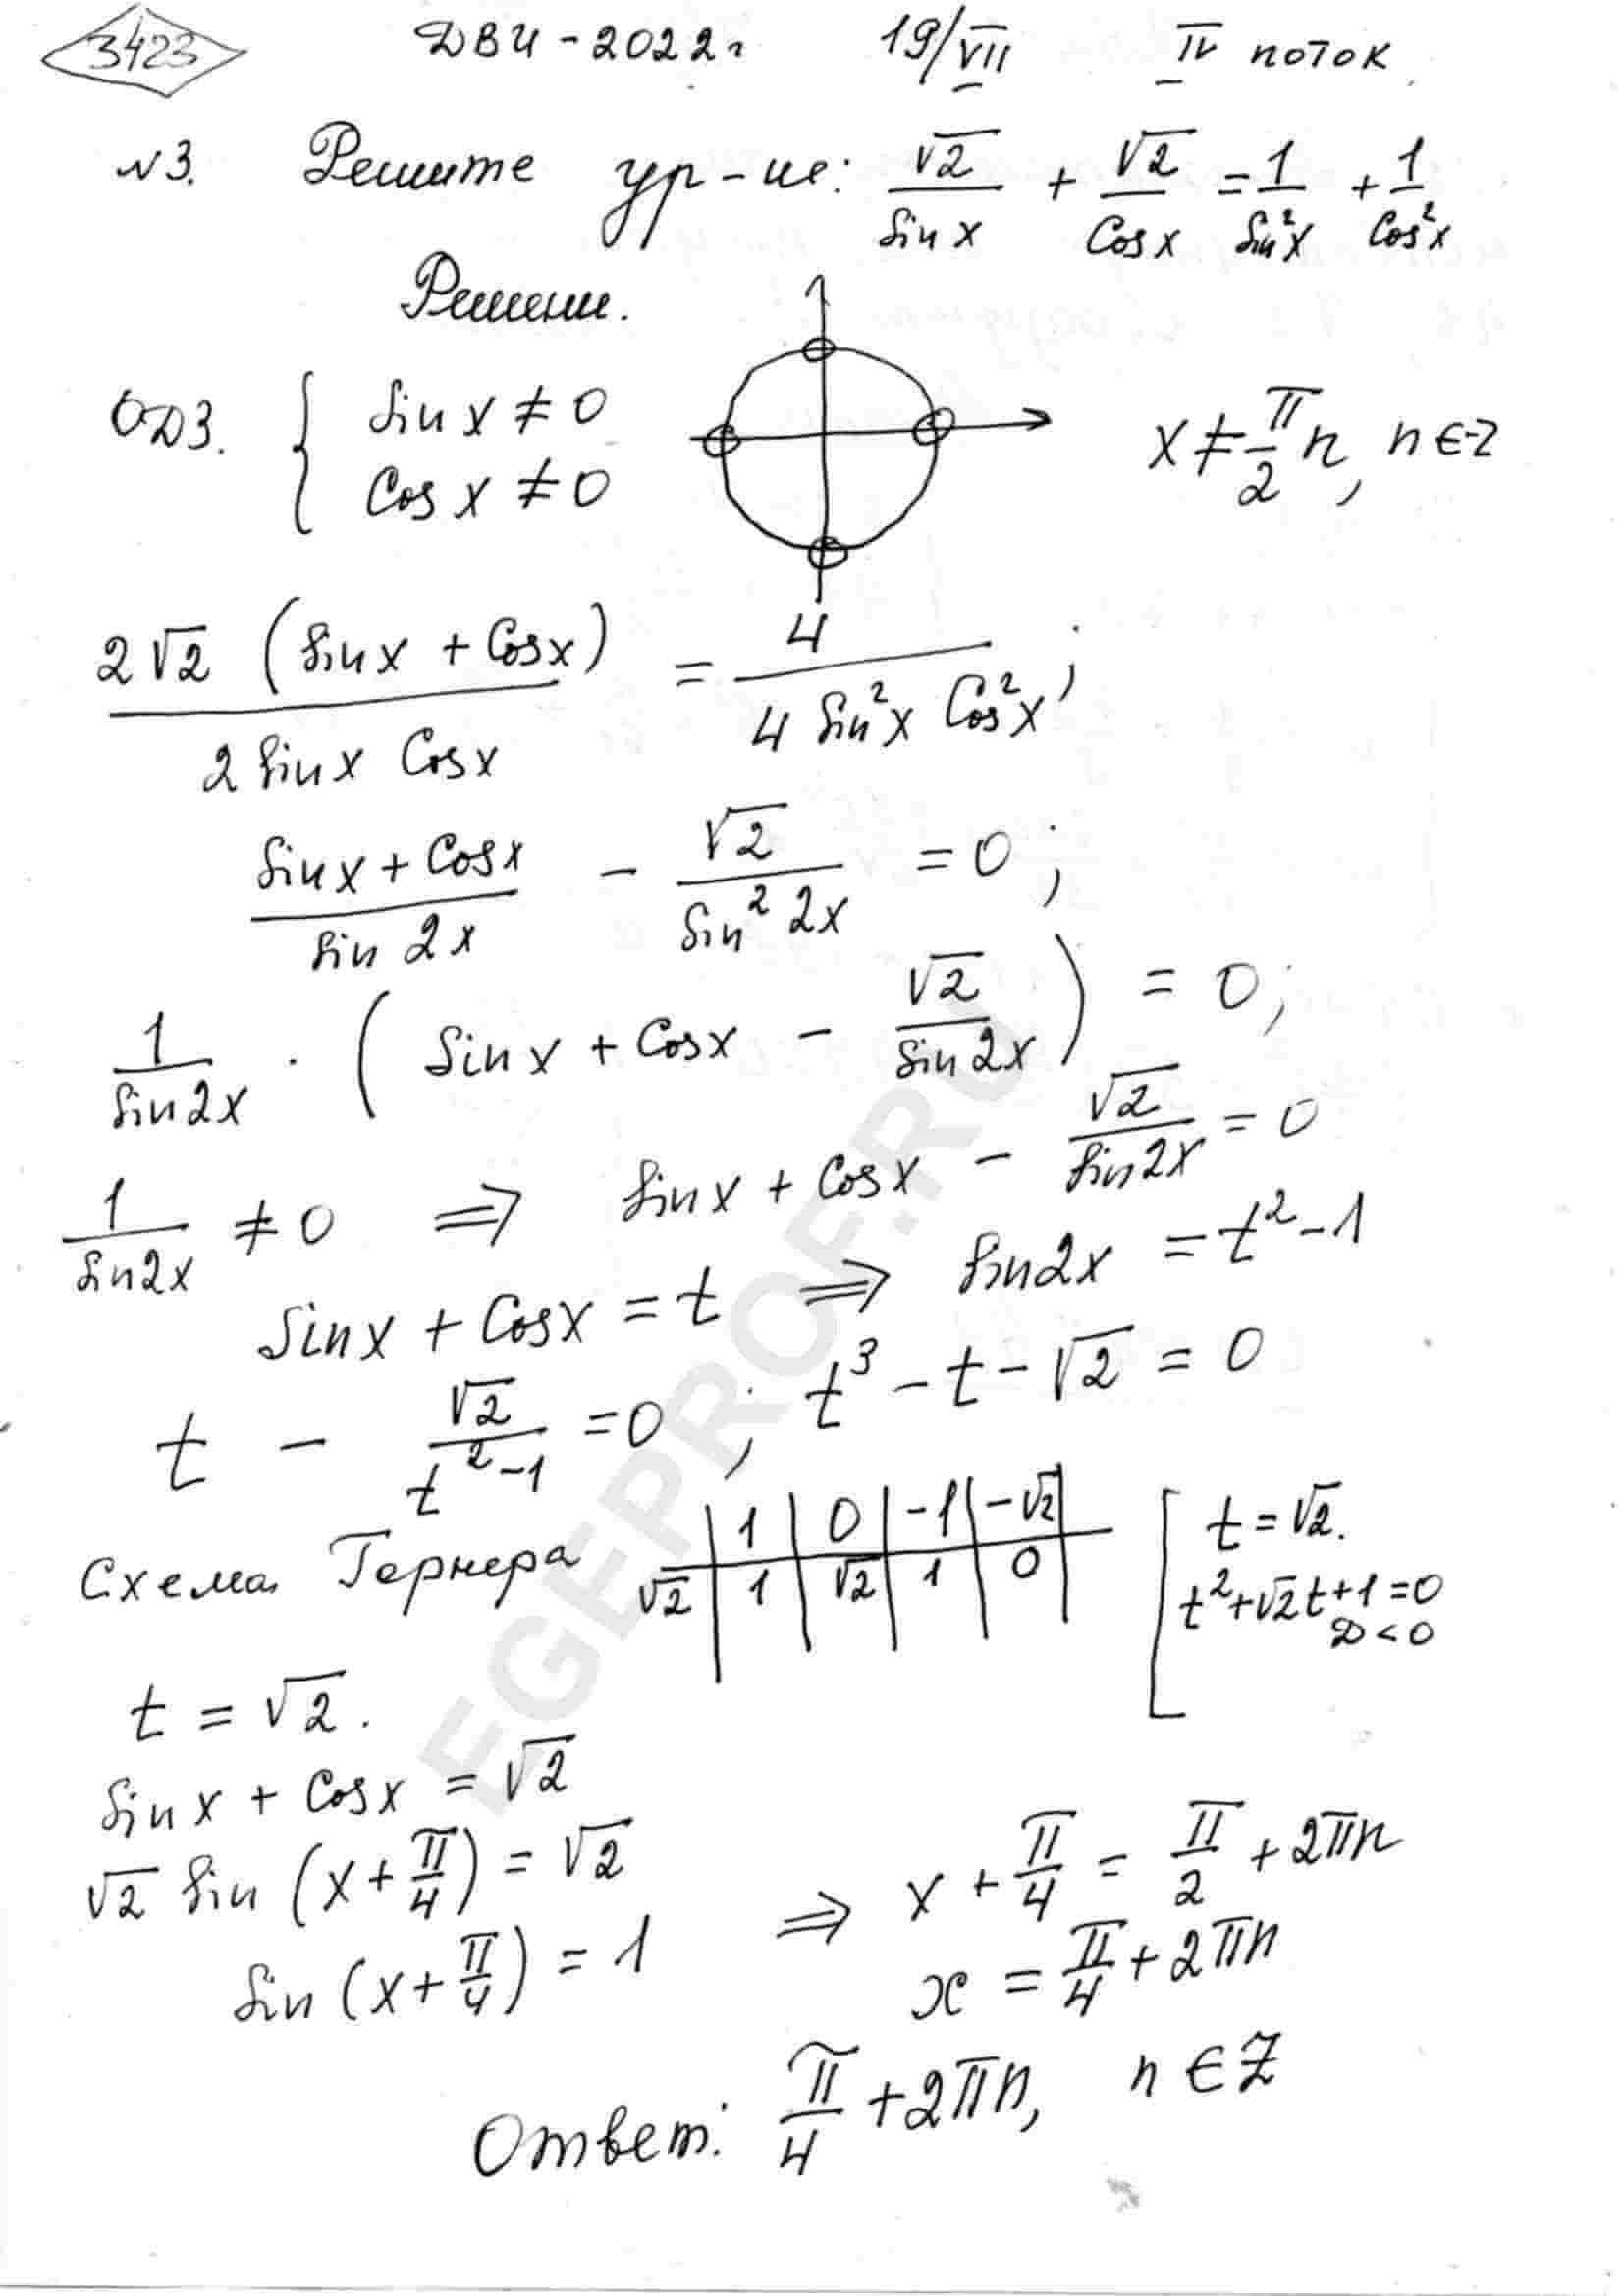 3423 ДВИ - 2022г 19/VII IV поток
№3. Решите ур-ие: √2/Sin x + √2/Cos x = 1/Sin²x + 1/Cos²x
Решени.
ОДЗ. { Sin x ≠ 0
Cos x ≠ 0
x ≠ π/2 n, n ∈ Z
2√2 (Sin x + Cos x)/2 Sin x Cos x = 4/4 Sin²x Cos²x;
Sin x + Cos x/Sin 2x - √2/Sin² 2x = 0;
1/Sin 2x · (Sin x + Cos x - √2/Sin 2x) = 0;
1/Sin 2x ≠ 0 ⇒ Sin x + Cos x - √2/Sin 2x = 0
Sin x + Cos x = t ⇒ Sin 2x = t² - 1
t - √2/t² - 1 = 0; t³ - t - √2 = 0
Схема Горнера
1 | 0 | -1 | -√2
√2 | 1 | √2 | 1 | 0
[ t = √2.
t² + √2t + 1 = 0
D < 0
t = √2.
Sin x + Cos x = √2
√2 Sin (x + π/4) = √2
⇒ x + π/4 = π/2 + 2πn
Sin (x + π/4) = 1
x = π/4 + 2πn
Ответ: π/4 + 2πn, n ∈ Z
EGEPROF.RU